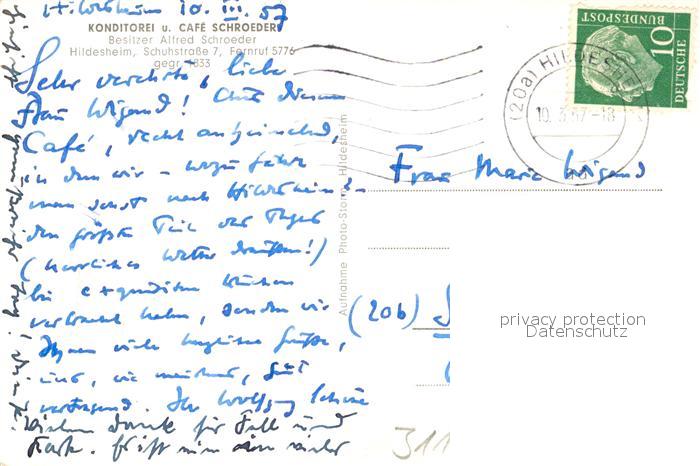 Hildesheim 10. III. 57
KONDITOREI u. CAFÉ SCHROEDER
Besitzer Alfred Schroeder
Hildesheim, Schuhstraße 7, Fernruf 5776
gegr. 1833
Sehr verehrte, liebe
Frau Wigand! Aus diesem
Café, recht anheimelnd,
in dem wir – wozu fährt
man sonst nach Hildesheim? –
den größten Teil des Tages
(herrliches Wetter draußen!)
bei exquisitem Kuchen
verbracht haben, senden wir
Ihnen viele herzliche Grüße,
uns, wie meistens, gut
vertragend. Ihr Wolfgang
Vielen Dank für und
nun
Aufnahme Photo-Storm Hildesheim
DEUTSCHE BUNDESPOST
10
(20a) HILDESHEIM
10.3.57-18
Frau Maria Wigand
(20b)
311
privacy protection
Datenschutz